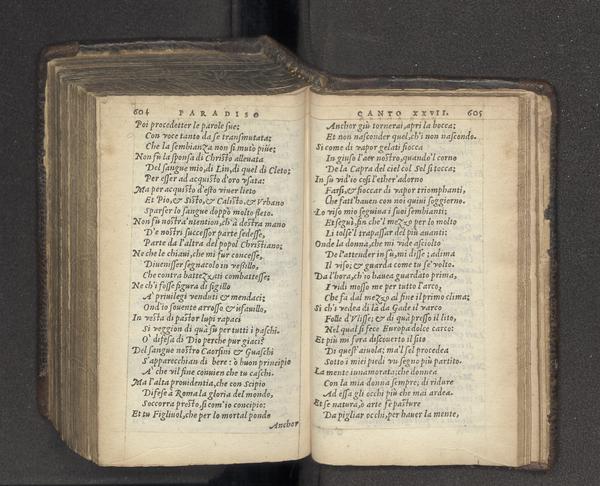 604 PARADISO
Poi procedetter le parole sue;
Con voce tanto da se transmutata;
Che la sembianza non si mutò piùe;
Non fu la sposa di Christo alleuata
Del sangue mio, di Lin, di quel di Cleto;
Per esser ad acquisto d'oro vsata:
Ma per acquisto d'esto viuer lieto
Et Pio, & Sisto, & Calisto, & Vrbano
Sparser lo sangue doppò molto fleto.
Non fu nostra'ntention, ch'à destra mano
De nostri successor parte sedesse,
Parte da l'altra del popol Christiano;
Ne che le chiaui, che mi fur concesse,
Diuenisser segnacolo in vesillo,
Che contra battezati combattesse;
Ne ch'i fosse figura di sigillo
A' priuilegi venduti & mendaci;
Ond'io souente arrosso & isauillo,
In vesta di pastor lupi rapaci
Si veggion di quà su per tutti i paschi.
O' difesa di Dio perche pur giaci?
Del sangue nostro Caorsini & Guaschi
S'apparecchian di bere: ò buon principio
A' che vil fine conuien che tu caschi.
Ma l'alta prouidentia, che con Scipio
Difese à Roma la gloria del mondo,
Soccorra presto, si com'io concipio:
Et tu Figliuol, che per lo mortal pondo
Anchor
CANTO XXVII. 605
Anchor giù tornerai, apri la bocca;
Et non nasconder quel, ch'i non nascondo.
Si come di vapor gelati fiocca
In giuso l'aer nostro, quando'l corno
De la Capra del ciel col Sol si tocca;
In su vid'io così l'ether'adorno
Farsi, & fioccar di vapor triomphanti,
Che fatt'hauen con noi quiui soggiorno.
Lo viso mio seguiua i suoi sembianti;
Et seguì, fin che'l mezzo per lo molto
Li tolse'l trapassar del più auanti:
Onde la donna, che mi vide asciolto
De l'attender in su, mi disse; adima
Il viso; & guarda come tu se' volto.
Da l'hora, ch'io hauea guardato prima,
I vidi mosso me per tutto l'arco,
Che fa dal mezzo al fine il primo clima;
Si ch'i vedea di là da Gade il varco
Folle d'Vlisse; & di quà presso il lito,
Nel qual si fece Europa dolce carco:
Et più mi fora discouerto il sito
Di quest'aiuola; ma'l sol procedea
Sotto i miei piedi vn segno più partito.
La mente innamorata; che donnea
Con la mia donna sempre; di ridure
Ad essa gli occhi più che mai ardea.
Et se natura, ò arte fe pasture
Da pigliar occhi, per hauer la mente,